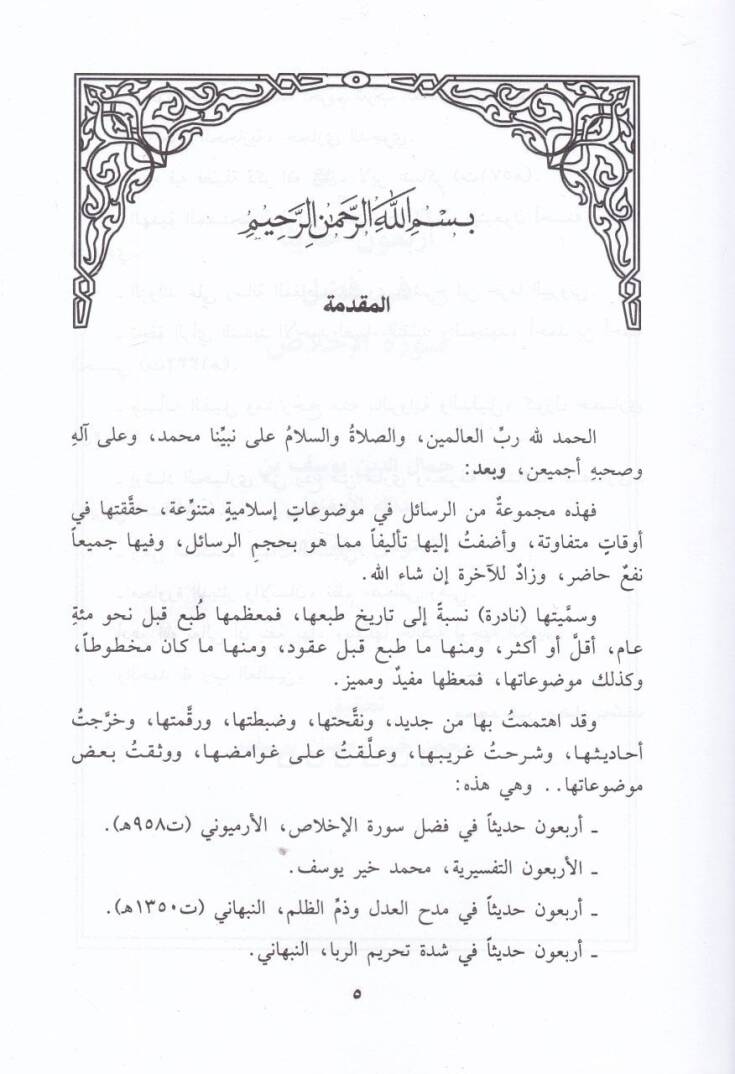 ٥
بسم الله الرحمن الرحيم
المقدمة
الحمد لله ربِّ العالمين، والصلاةُ والسلامُ على نبيِّنا محمد، وعلى آلهِ
وصحبهِ أجميعن، وبعد:
فهذه مجموعةٌ من الرسائل في موضوعاتٍ إسلاميةٍ متنوِّعة، حقَّقتها في
أوقاتٍ متفاوتة، وأضفتُ إليها تأليفاً مما هو بحجمِ الرسائل، وفيها جميعاً
نفعٌ حاضر، وزادٌ للآخرة إن شاء الله.
وسمَّيتها (نادرة) نسبةً إلى تاريخ طبعها، فمعظمها طُبع قبل نحو مئةِ
عام، أقلَّ أو أكثر، ومنها ما طبع قبل عقود، ومنها ما كان مخطوطاً،
وكذلك موضوعاتها، فمعظها مفيدٌ ومميز.
وقد اهتممتُ بها من جديد، ونقَّحتها، وضبطتها، ورقَّمتها، وخرَّجتُ
أحاديثها، وشرحتُ غريبها، وعلَّقتُ على غوامضها، ووثقتُ بعض
موضوعاتها.. وهي هذه:
ـ أربعون حديثاً في فضل سورة الإخلاص، الأرميوني (ت٩٥٨هـ).
ـ الأربعون التفسيرية، محمد خير يوسف.
ـ أربعون حديثاً في مدح العدل وذمِّ الظلم، النبهاني (ت١٣٥٠هـ).
ـ أربعون حديثاً في شدة تحريم الربا، النبهاني.
٥